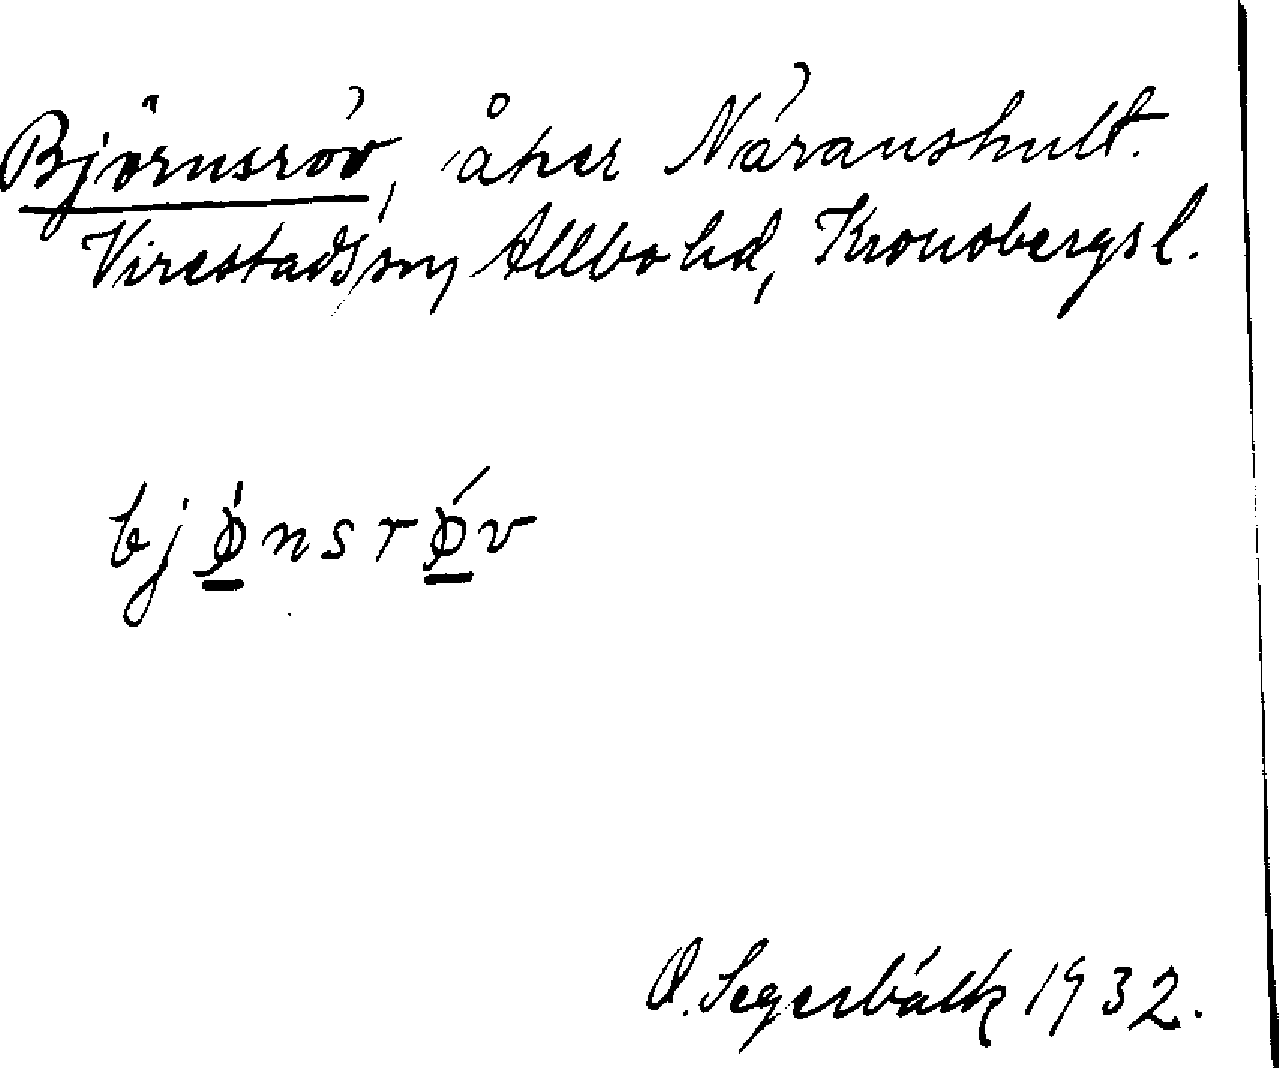 Björnsröv, åker Näramshult.
Virestads sn, Allbo hd, Kronobergs l.
bjø̲̀nsrǿ̲v
O. Segerbälk 1932.